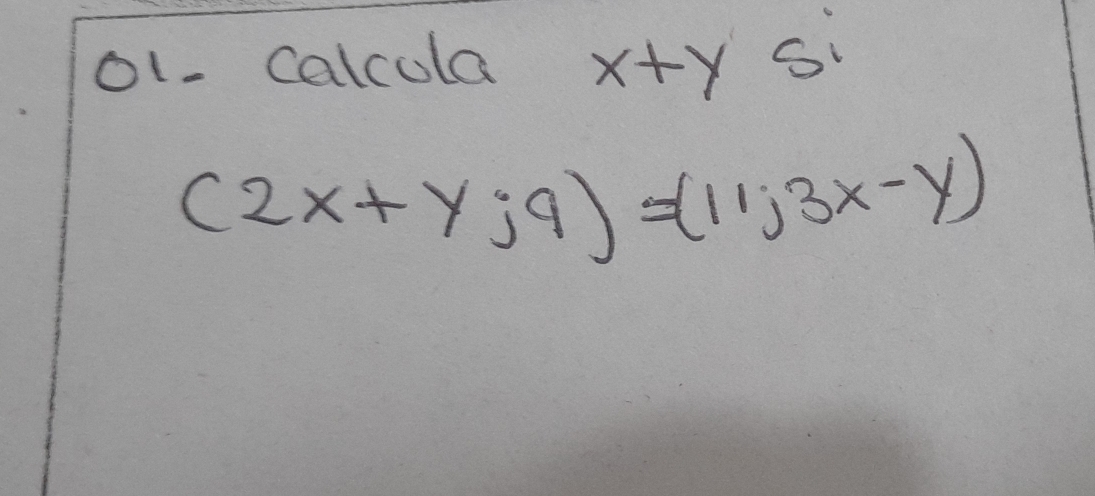 01- Calcula x+y si
(2x+y;9)=(11;3x-y)